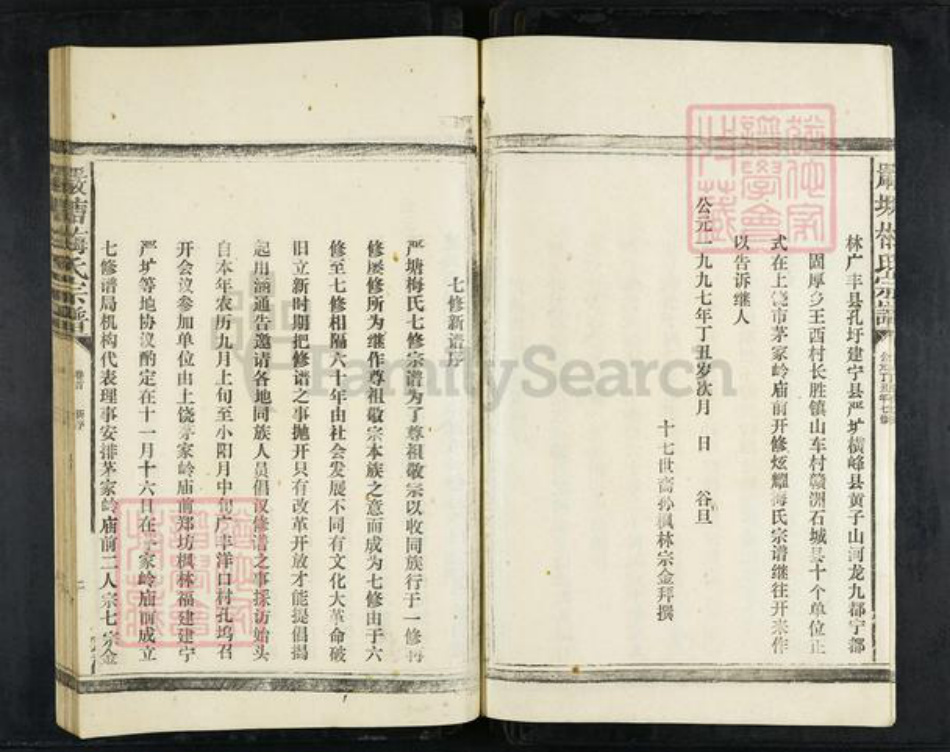 林广丰县孔圩建宁县严圹横峰县黄子山河龙九都宁都
固厚乡王西村长胜镇山车村赣洲石城县十个单位正
式在上饶市茅家岭庙前开修炫耀梅氏宗谱继往开来作
以告诉继人
公元一九九七年丁丑岁次月 日 谷旦
十七世裔孙枫林宗金拜撰
七修新谱序
严塘梅氏七修宗谱为了尊祖敬宗以收同族行于一修再
修屡修所为继作尊祖敬宗本族之意而成为七修由于六
修至七修相隔六十年由社会发展不同有文化大革命破
旧立新时期把修谱之事抛开只有改革开放才能提倡揭
起用涵通告邀请各地同族人员倡议修谱之事採访始头
自本年农历九月上旬至小阳月中旬广丰洋口村孔坞召
开会议参加单位由上饶茅家岭庙前郑坊枫林福建建宁
严圹等地协议酌定在十一月十六日在茅家岭庙前成立
七修谱局机构代表理事安排茅家岭庙前二人宗七宗金
嚴塘梅氏宗譜
卷首 新序
FamilySearch